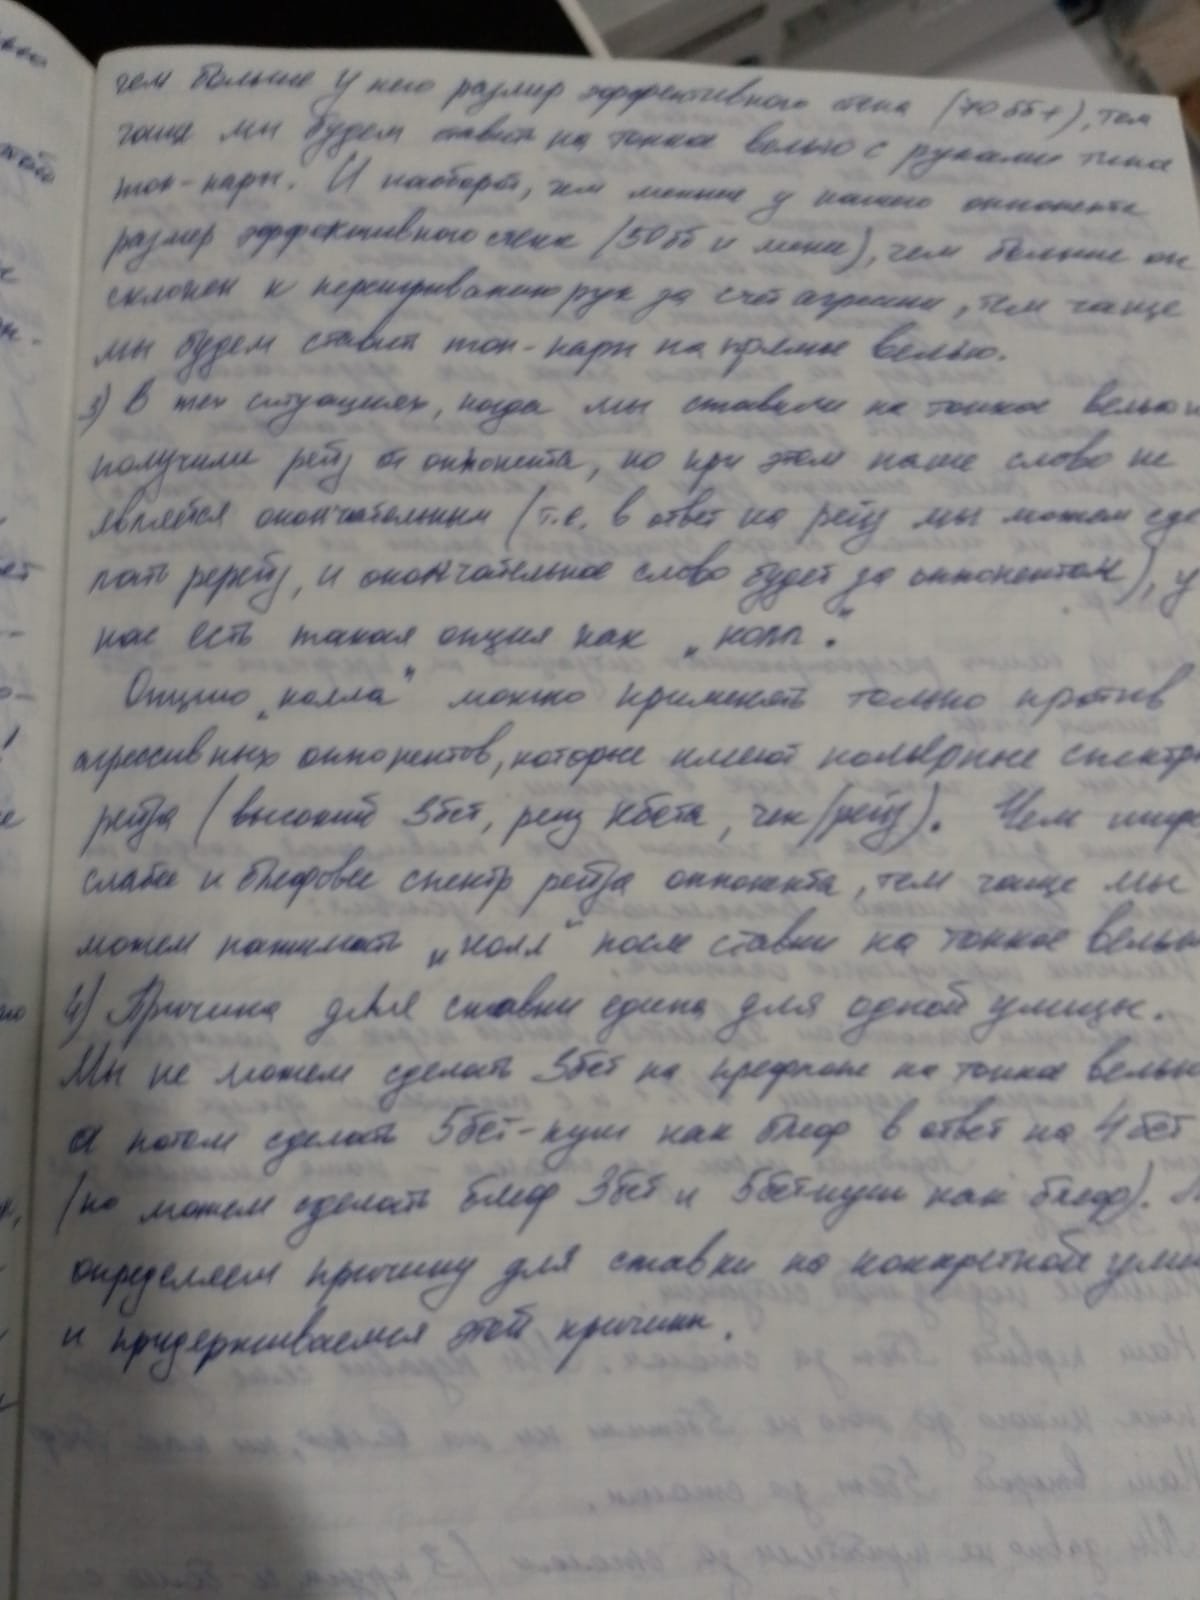 чем больше у него размер эффективного стека (70бб+), тем
чаще мы будем ставить на тонкое велью с руками типа
топ-пары. И наоборот, чем меньше у нашего оппонента
размер эффективного стека (50бб и менее), чем больше он
склонен к переигрыванию рук за счёт агрессии, тем чаще
мы будем ставить топ-пары на прямые велью.
3) В тех ситуациях, когда мы ставили на тонкое велью и
получили рейз от оппонента, но при этом наше слово не
является окончательным (т.е. в ответ на рейз мы можем сде-
лать ререйз, и окончательное слово будет за оппонентом), у
нас есть такая опция как „колл“.
Опцию „колла“ можно применять только против
агрессивных оппонентов, которые имеют полярные спектры
рейза (высокий 3бет, рейз кбета, чек/рейз). Чем шире
слабее и блефовее спектр рейза оппонента, тем чаще мы
можем нажимать „колл“ после ставки на тонкое велью
4) Причина для ставки едина для одной улицы.
Мы не можем сделать 3бет на префлопе на тонкое велью
а потом сделать 5бет-пуш как блеф в ответ на 4бет
(но можем сделать блеф 3бет и 5бетпуш как блеф).
определяем причину для ставки на конкретной улице
и придерживаемся этой причины.